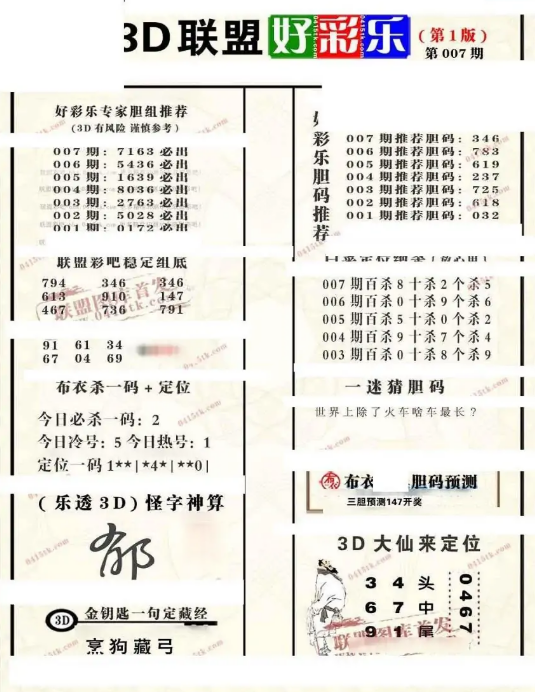 3D联盟好彩乐(第1版)
第007期
好彩乐专家胆组推荐
(3D有风险 谨慎参考)
007期:7163必出
006期:5436必出
005期:1639必出
004期:8036必出
003期:2763必出
002期:5028必出
001期:0172必出
联盟彩吧稳定组底
794 346 346
613 910 147
467 736 791
91 61 34
67 04 69
布衣杀一码+定位
今日必杀一码:2
今日冷号:5今日热号:1
定位一码1**|*4*|**0|
(乐透3D)怪字神算
郁
3D 金钥匙一句定藏经
烹狗藏弓
彩乐胆码推荐
007期推荐胆码:346
006期推荐胆码:783
005期推荐胆码:619
004期推荐胆码:237
003期推荐胆码:725
002期推荐胆码:618
001期推荐胆码:032
007期百杀8十杀2个杀5
006期百杀0十杀9个杀6
005期百杀5十杀0个杀2
004期百杀9十杀7个杀4
003期百杀0十杀8个杀9
一迷猜胆码
世界上除了火车啥车最长?
布衣 胆码预测
三胆预测147开奖
3D大仙来定位
3 4 头
6 7 中
9 1 尾
0467